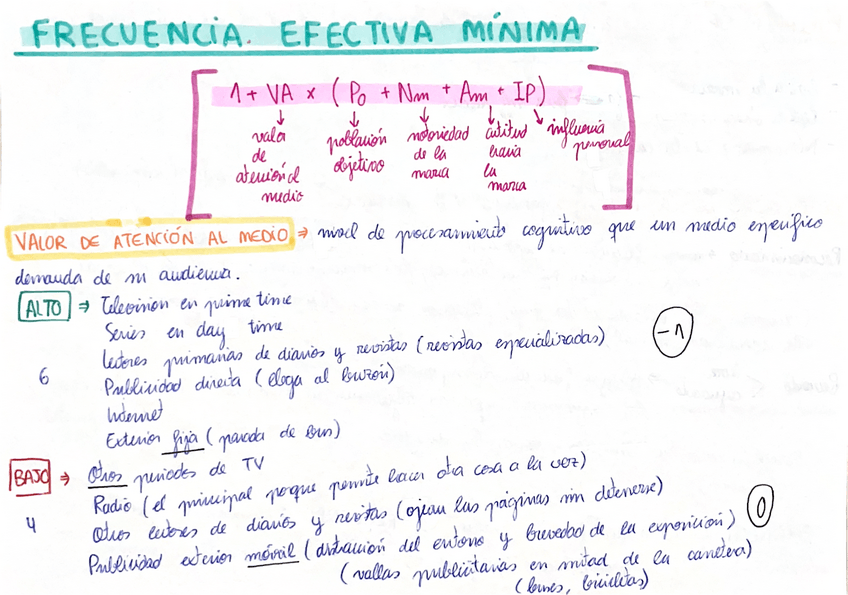 FRECUENCIA. EFECTIVA MÍNIMA
1 + VA × (Po + Nm + Am + IP)
valor de atención al medio
población objetivo
notoriedad de la marca
actitud hacia la marca
influencia personal
VALOR DE ATENCIÓN AL MEDIO ⇒ nivel de procesamiento cognitivo que un medio específico
demanda de su audiencia.
ALTO ⇒ Televisión en prime time
Series en day time
Lectores primarias de diarios y revistas (revistas especializadas)
-1
6
Publicidad directa (llega al buzón)
Internet
Exterior fija (parada de bus)
BAJO ⇒ Otros periodos de TV
Radio (el principal porque permite hacer otra cosa a la vez)
4
Otros lectores de diarios y revistas (ojean las páginas sin detenerse)
0
Publicidad exterior móvil (distracción del entorno y brevedad de la exposición)
(vallas publicitarias en mitad de la carretera)
(buses, bicicletas)